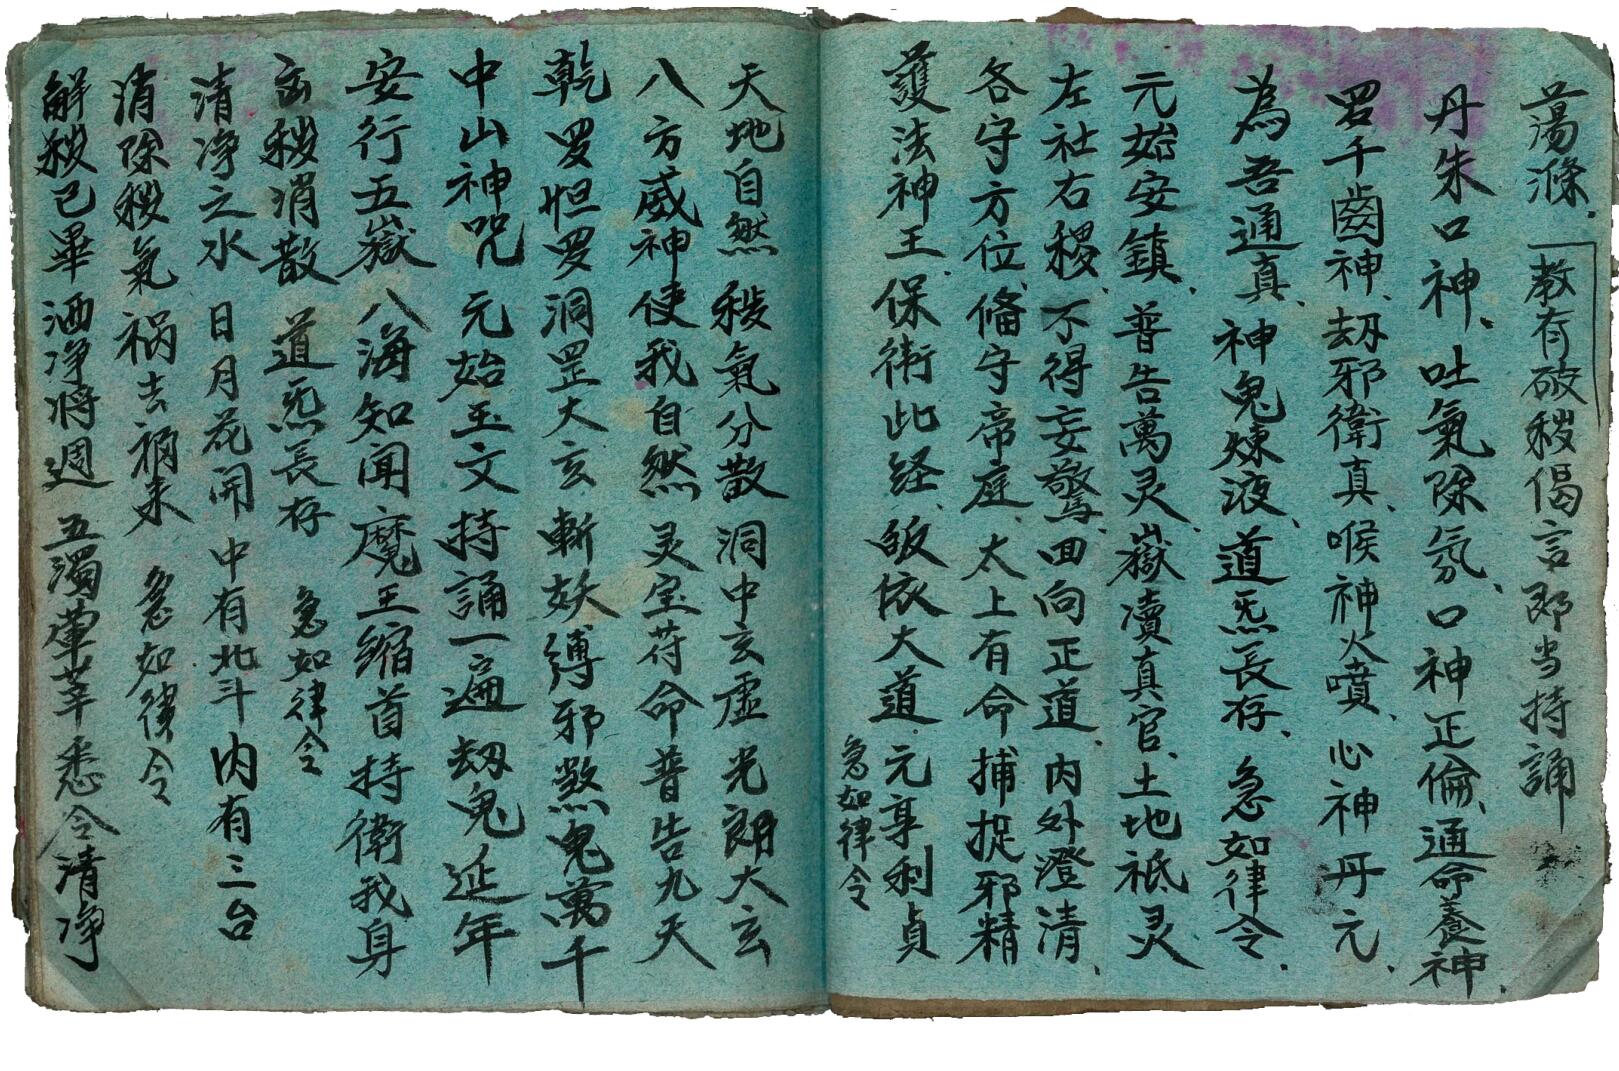 蕩滌.教有破秽偈言即当持誦
丹朱口神、吐氣除氛、口神正倫、通命養神.
罗千齒神、刼邪衛真、喉神火噴、心神丹元.
為吾通真、神鬼煉液、道炁長存、急如律令.
元始安鎮、普告萬灵、嶽瀆真官、土地祇灵
左社右稷、不得妄驚、回向正道、内外澄清、
各守方位、俻守帝庭、太上有命捕捉邪精
護法神王、保衛此经、皈依大道、元享利貞
急如律令
天地自然　秽氣分散　洞中玄虚　光朗太玄
八方威神使我自然　灵宝符命普告九天
乾罗怛罗洞罡大玄　斬妖縛邪煞鬼萬千
中山神咒　元始玉文　持誦一遍刼鬼延年
安行五嶽　八海知闻　魔王缩首　持衛我身
凶秽消散　道炁長存　急如律令
清净之水　日月花開　中有北斗　内有三台
消除秽氣　祸去福来　急如律令
解秽已畢　洒净将週　五濁荤莘悉令清净